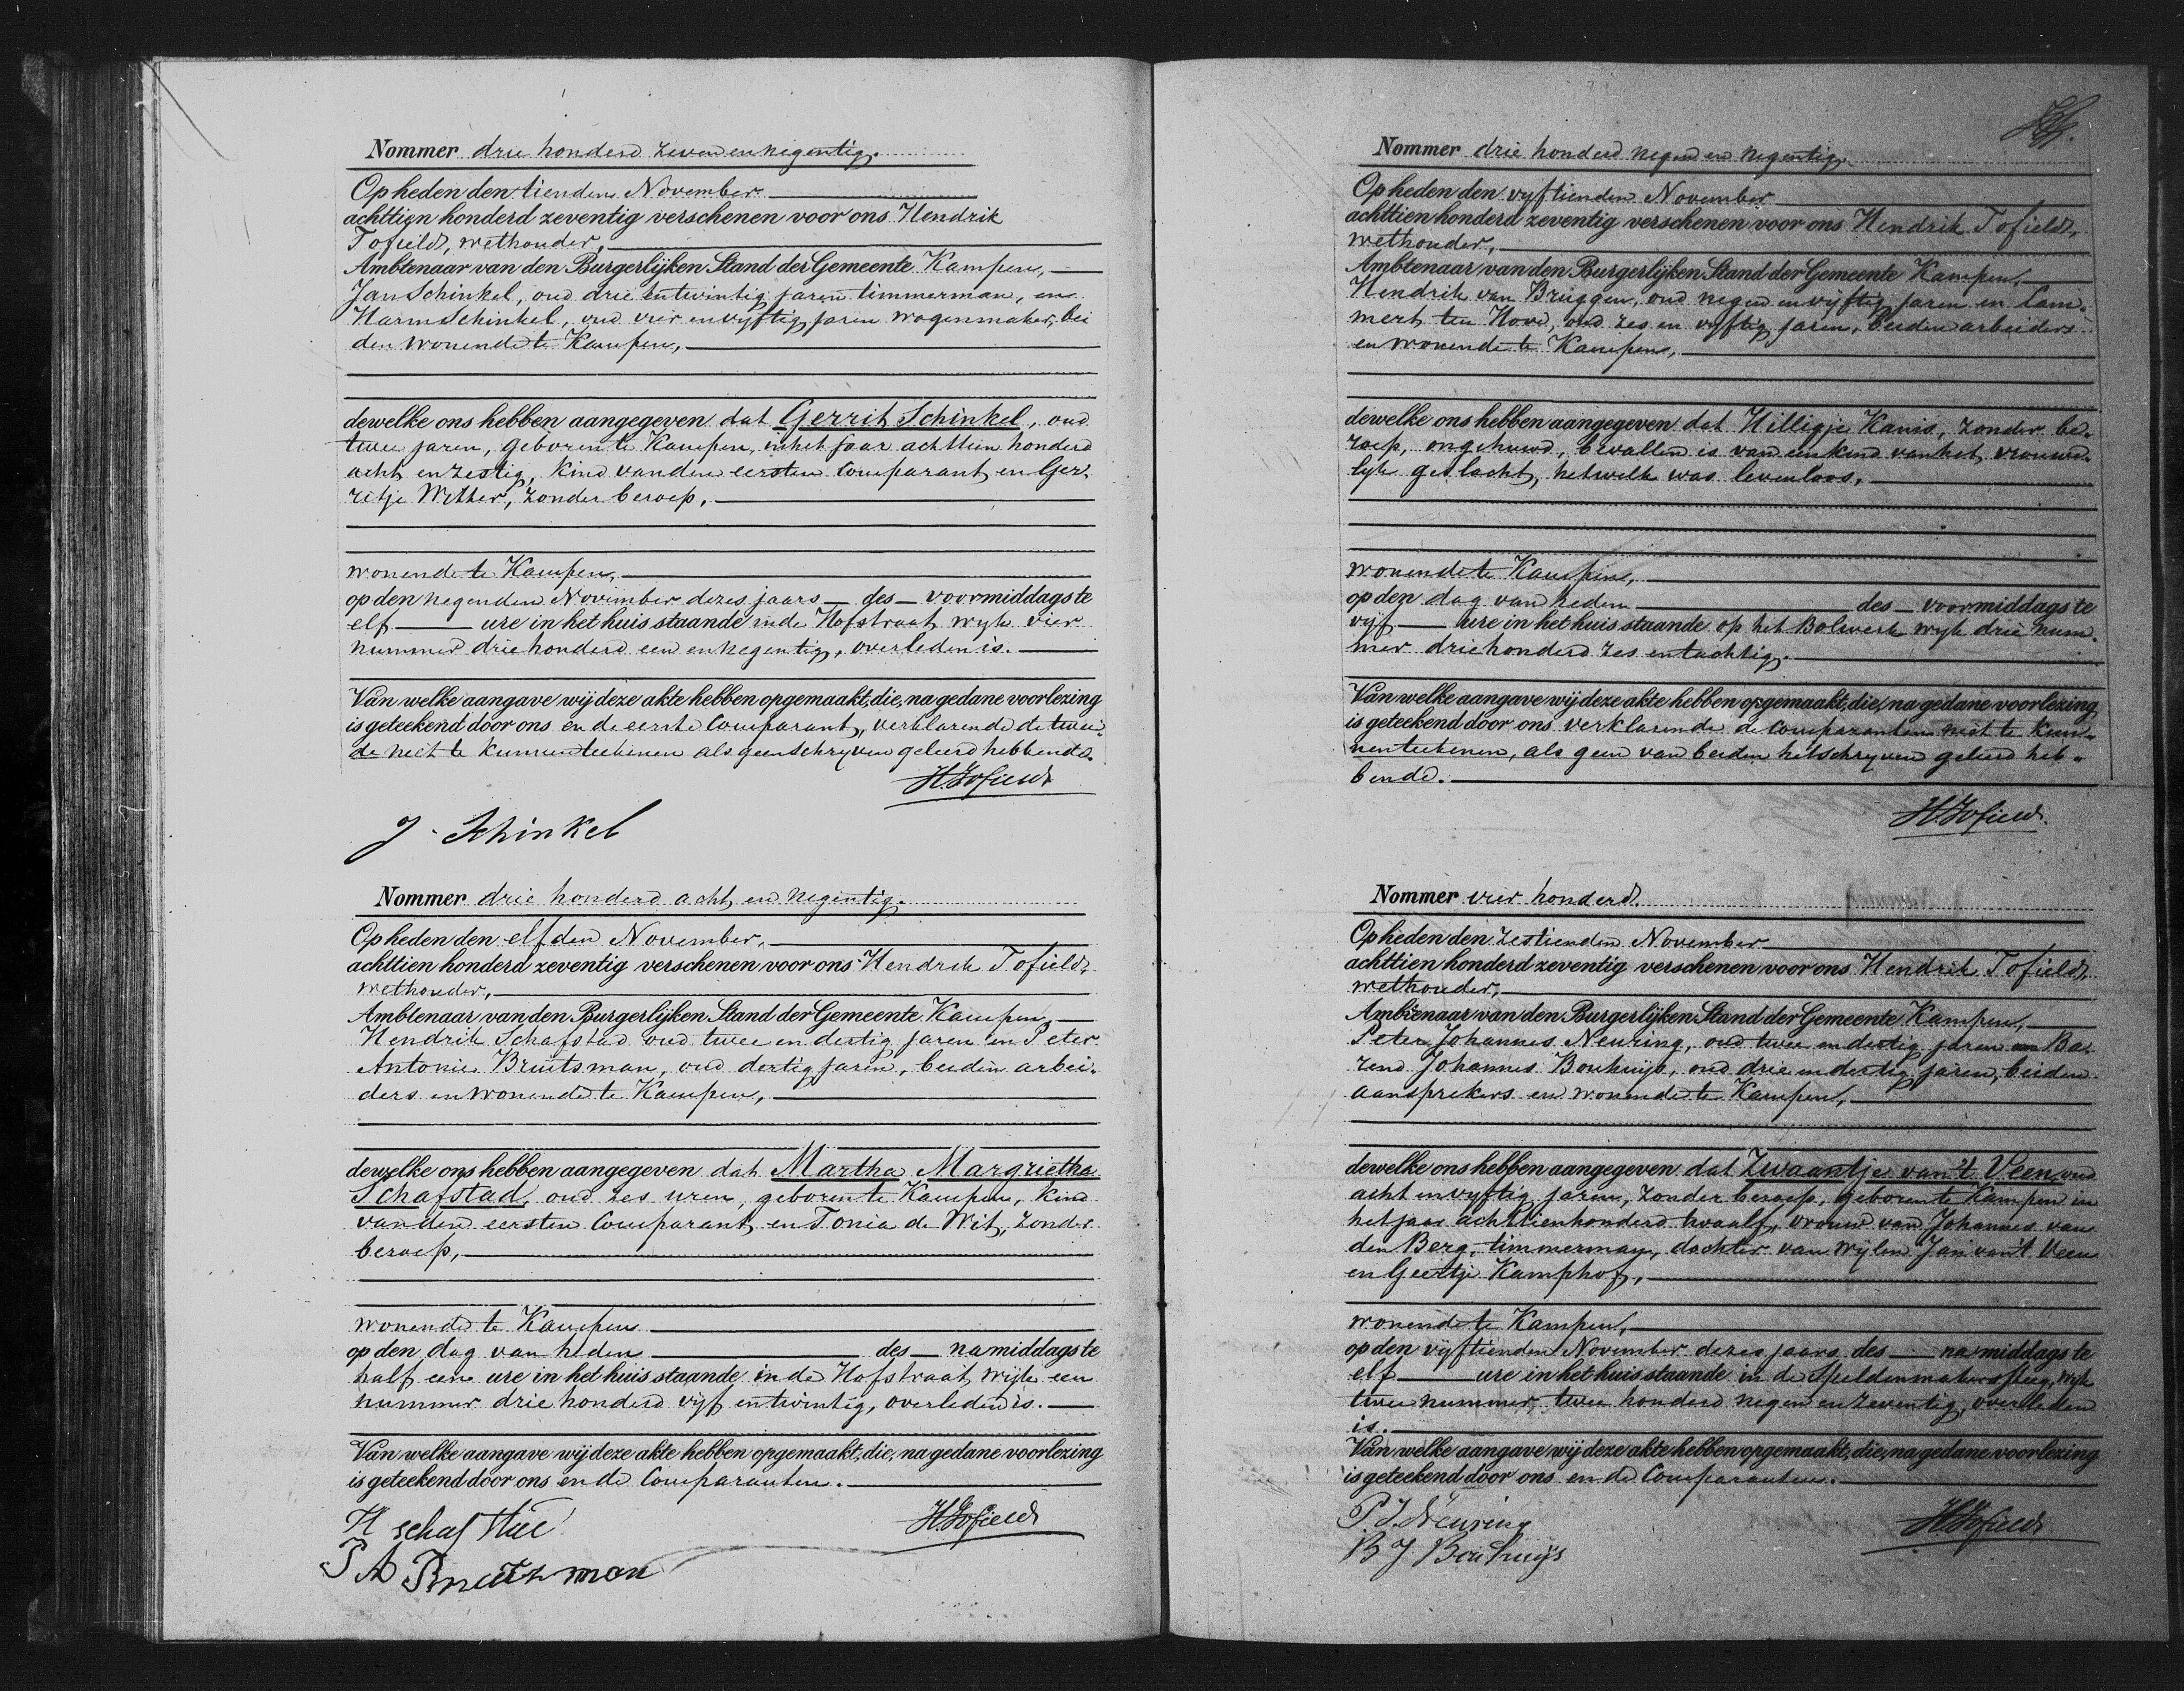 Nommer drie honderd zeven en negentig.
Op heden den tienden November
achttien honderd zeventig verschenen voor ons Hendrik
Tofield, wethouder,
Ambtenaar van den Burgerlijken Stand der Gemeente Kampen,
Jan Schinkel, oud drie en twintig jaren timmerman, en
Harm Schinkel, oud vier en vyftig jaren wagenmaker, bei
den wonende te Kampen,
dewelke ons hebben aangegeven dat Gerrit Schinkel, oud
twee jaren, geboren te Kampen, in het jaar achttien honderd
acht en zestig, kind van den eersten Comparant en Ger-
ritje Wither, zonder beroep,
wonende te Kampen,
op den negenden November dezes jaars des voormiddags te
elf ure in het huis staande in de Hofstraat wyk vier
nummer drie honderd een en negentig, overleden is.
Van welke aangave wij deze akte hebben opgemaakt, die, na gedane voorlezing
is geteekend door ons en de eerste Comparant, verklarende de twee-
de niet te kunnen teekenen als geen schryven geleerd hebbende.
H. Tofield
J. Schinkel
Nommer drie honderd acht en negentig.
Op heden den elfden November,
achttien honderd zeventig verschenen voor ons Hendrik Tofield,
wethouder,
Ambtenaar van den Burgerlijken Stand der Gemeente Kampen,
Hendrik Schafstad oud twee en dertig jaren en Peter
Antonie Bruitsman, oud dertig jaren, beiden arbei-
ders en wonende te Kampen,
dewelke ons hebben aangegeven dat Martha Margrietha
Schafstad, oud zes uren, geboren te Kampen, kind
van den eersten Comparant en Tonia de Wit, zonder
beroep,
wonende te Kampen
op den dag van heden des namiddags te
half eene ure in het huis staande in de Hofstraat wijk een
nummer drie honderd vyf en twintig, overleden is.
Van welke aangave wij deze akte hebben opgemaakt, die, na gedane voorlezing
is geteekend door ons en de Comparanten.
H. Tofield
H schafstad
P A Bruitsman
Nommer drie honderd negen en negentig.
Op heden den vyftienden November
achttien honderd zeventig verschenen voor ons Hendrik Tofield,
wethouder,
Ambtenaar van den Burgerlijken Stand der Gemeente Kampen,
Hendrik van Bruggen, oud negen en vyftig jaren en Lam-
mert ten Hove, oud zes en vyftig jaren, beiden arbeiders
en wonende te Kampen,
dewelke ons hebben aangegeven dat Hilligje Kanis, zonder be-
roep, ongehuwd, bevallen is van een kind van het vrouwe-
lyk geslacht, hetwelk was levenloos,
wonende te Kampen,
op den dag van heden des voormiddags te
vyf ure in het huis staande op het Bolwerk wyk drie num-
mer driehonderd zes en tachtig.
Van welke aangave wij deze akte hebben opgemaakt, die, na gedane voorlezing
is geteekend door ons verklarende de Comparanten niet te kun-
nen teekenen, als geen van beiden het schryven geleerd heb-
bende.
H. Tofield
Nommer vier honderd.
Op heden den zestienden November
achttien honderd zeventig verschenen voor ons Hendrik Tofield,
wethouder,
Ambtenaar van den Burgerlijken Stand der Gemeente Kampen,
Peter Johannes Neuring, oud twee en dertig jaren en Ba-
rend Johannes Bouhuijs, oud drie en dertig jaren, beiden
aansprekers en wonende te Kampen,
dewelke ons hebben aangegeven dat Zwaantje van 't Veen, oud
acht en vyftig jaren, zonder beroep, geboren te Kampen in
het jaar achttienhonderd twaalf, vrouw van Johannes van
den Berg, timmerman, dochter van wijlen Jan van 't Veen
en Geertje Kamphof,
wonende te Kampen,
op den vijftienden November dezes jaars des namiddags te
elf ure in het huis staande in de Speldenmakerssteeg, wyk
twee nummer twee honderd negen en zeventig, overleden
is.
Van welke aangave wij deze akte hebben opgemaakt, die, na gedane voorlezing
is geteekend door ons en de Comparanten.
P J. Neuring
H. Tofield
B J Bouhuijs